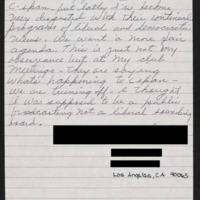 C-span, but lately I've become
very disgusted with their continued
programs of liberal and democratic
views. We want a more fair
agenda. This is just not my
observance but at my club
meetings - they are saying
what's happening to C-span -
we are turning off. I thought
it was supposed to be a public
broadcasting not a liberal sounding
board.
Los Angeles, CA 90065